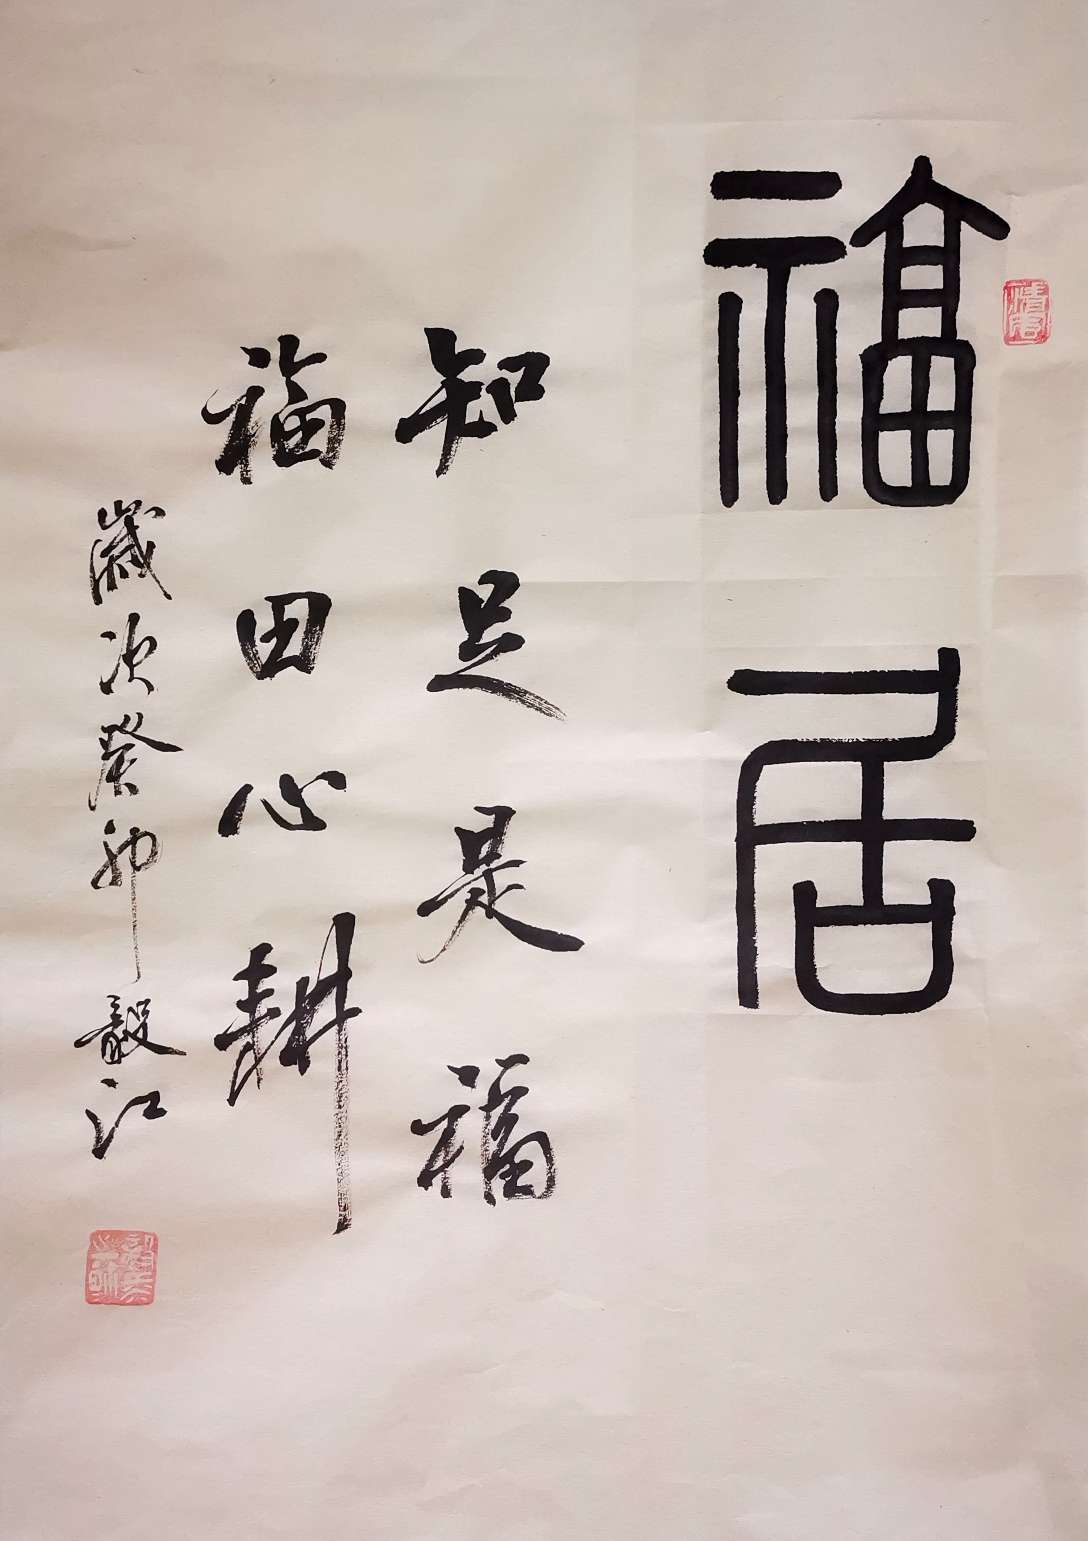 福居
知足是福
福田心耕
歲次癸卯毅江